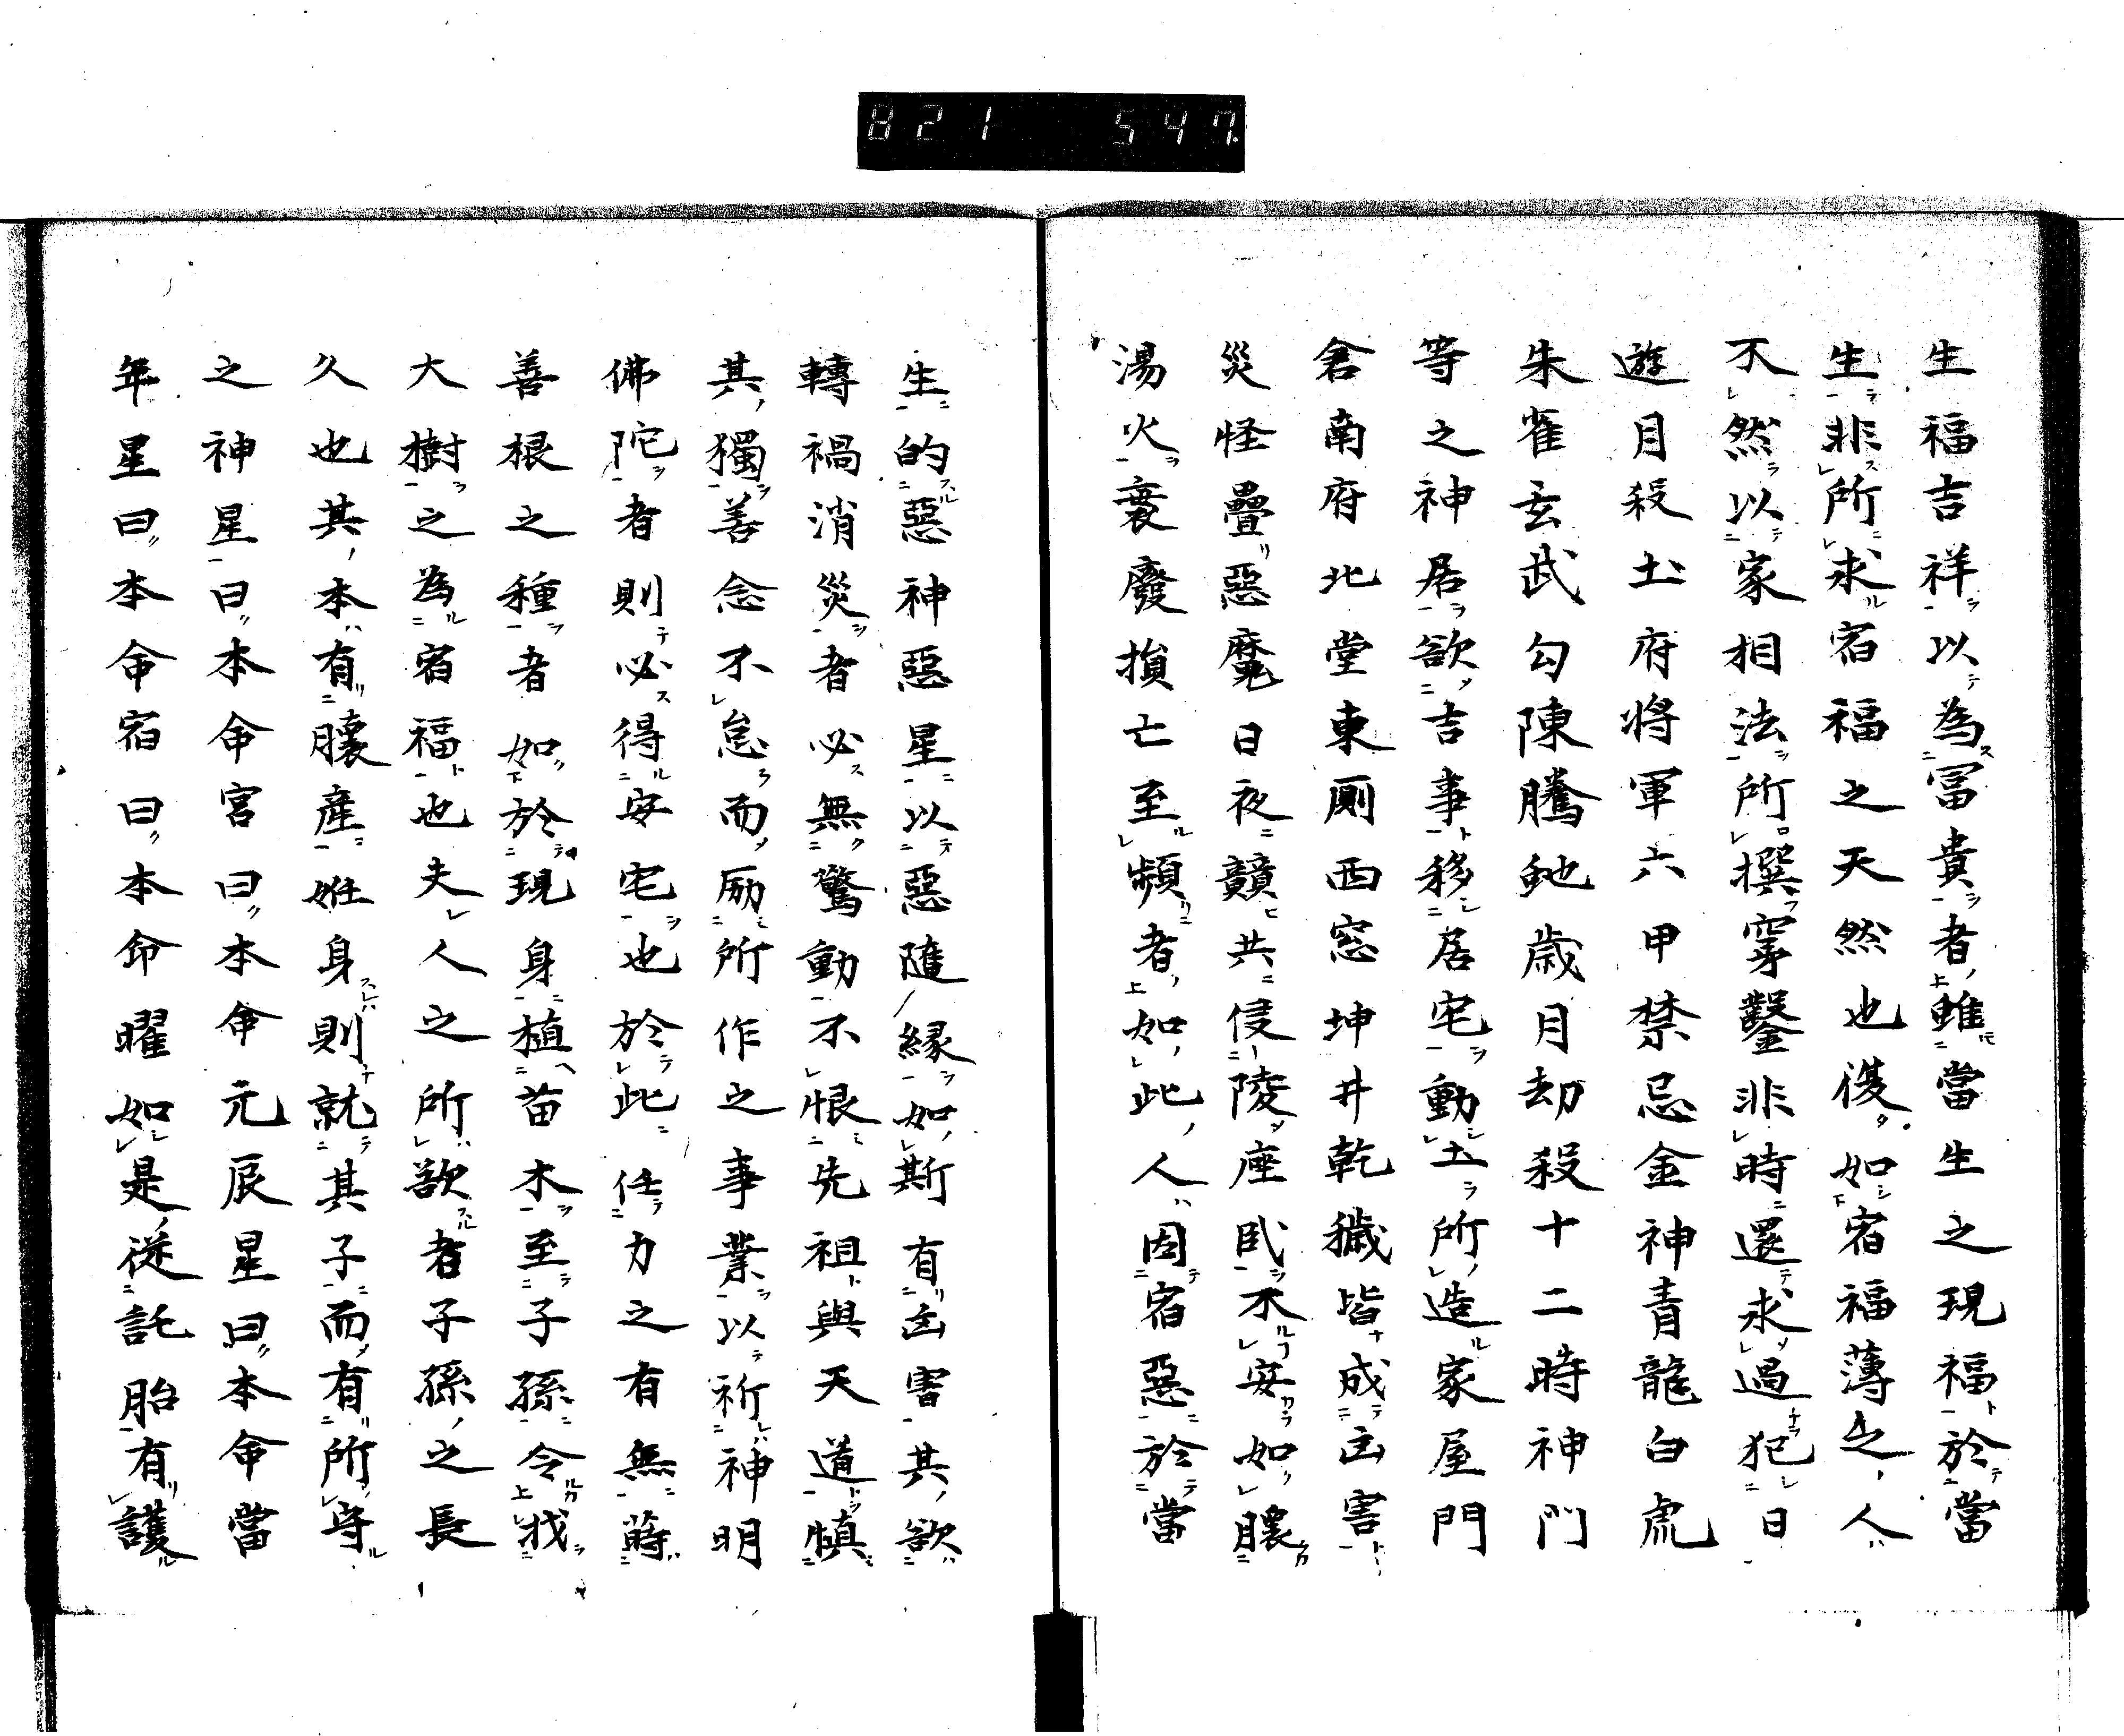 821 547
生福吉祥以為冨貴者雖當生之現福於當
生非所求宿福之天然也復如宿福薄之人
不然以家相法所撰穿鑿非時還求過犯日
遊月殺土府將軍六甲禁忌金神青龍白虎
朱雀玄武勾陳騰虵歳月劫殺十二時神門
等之神居欲吉事移居宅動土所造家屋門
倉南府北堂東厠西窓坤井乾穢皆成凶害
災怪疊惡魔日夜競共侵陵座臥不安如膿
湯火衰廢損亡至頻者如此人因宿惡於當
生的惡神惡星以惡隨縁如斯有凶害其欲
轉禍消災者必無驚動不恨先祖與天道慎
其獨善念不怠而励所作之事業以祈神明
佛陀者則必得安宅也於此任力之有無蒔
善根之種者如於現身植苗木至子孫令伐
大樹之為宿福也夫人之所欲者子孫之長
久也其本有膿産姙身則就其子而有所守
之神星曰本命宮曰本命元辰星曰本命當
年星曰本命宿曰本命曜如是從託胎有護